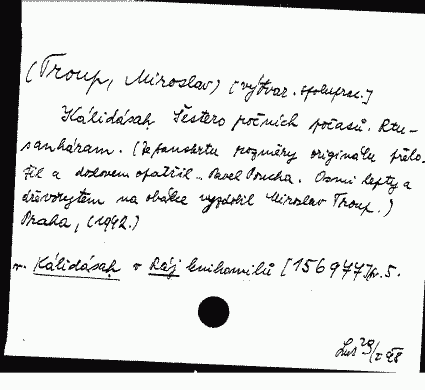 (Troup, Miroslav) [výtvar. spoluprac.]
Kálidásah Šestero počních počasů. Rtu-
sanháram. (Ze sanskrtu rozměry originálu přelo-
žil a doslovem opatřil .. Pavel Poucha. Osmi lepty a
dřevorytem na obálce vyzdobil Miroslav Troup.)
Praha, (1942.)
v. Kálidásah v Ráj knihomilů [156977]sv. 5.
29/I 48